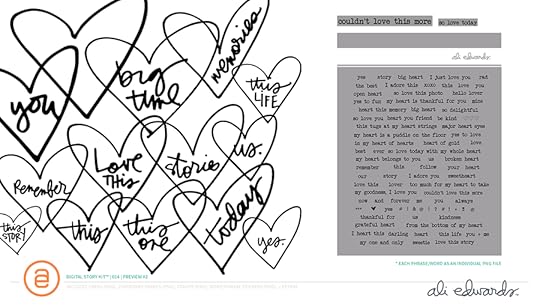 memories
big
time
this
LIFE
you
Love
THIS
stories
us.
Remember
this
STORY
this
this
one
today
yes.
couldn't love this more
so love today
ali edwards
yes story big heart I just love you rad
the best I adore this xoxo this love you
open heart so love this photo hello lover
yes to fun my heart is thankful for you mine
heart this memory big heart so delightful
so love you heart you friend be kind
this tugs at my heart strings major heart eyes
my heart is a puddle on the floor yes to love
in my heart of hearts heart of gold love
best ever so love today with my whole heart
my heart belongs to you us broken heart
remember this follow your heart
our story I adore you sweetheart
love this lover too much for my heart to take
my goodness, I love you couldn't love this more
now and forever me you always
thankful for us kindness
grateful heart from the bottom of my heart
I heart this darling heart this life you + me
my one and only sweetie love this story
* EACH PHRASE/WORD AS AN INDIVIDUAL PNG FILE
DIGITAL STORY KIT™ | 014 | PREVIEW #2
ali edwards